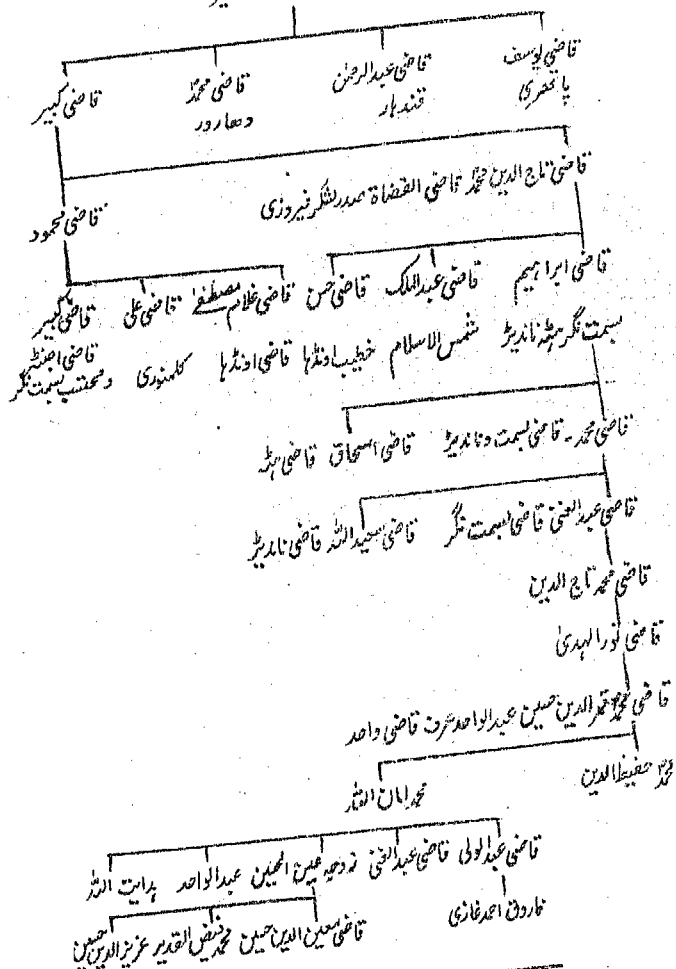 قاضی یوسف قاضی عبدالرحمٰن قاضی محمدؐ قاضی کبیر
پاتھری قندہار دھارور
قاضی تاج الدین محمدؐ قاضی القضاۃ صدر لشکر فیروزی قاضی محمود
قاضی ابراہیم قاضی عبدالملک قاضی حسن قاضی غلام مصطفےٰ قاضی علی قاضی کبیر
بسمت نگر ہٹہ ناندیڑ شمس الاسلام خطیب اونڈہا قاضی اونڈہا کلمنوری قاضی
و محتسب بسمت نگر
قاضی محمد ۔ قاضی بسمت و ناندیڑ قاضی اسحاق قاضی ہٹہ
قاضی عبدالغنی قاضی بسمت نگر قاضی سعیداللہ قاضی ناندیڑ
قاضی محمد تاج الدین
قاضی نورالہدیٰ
قاضی محمدؐ قمرالدین حسین عبدالواحد عرف قاضی واحد
محمدؐ حفیظ الدین محمد امان اللہ
قاضی عبدالولی قاضی عبدالغنی زوجہ عین الحسین عبدالواحد ہدایت اللہ
فاروق احمد غازی قاضی معین الدین حسین محمد فیض القدیر عزیزالدین حسین